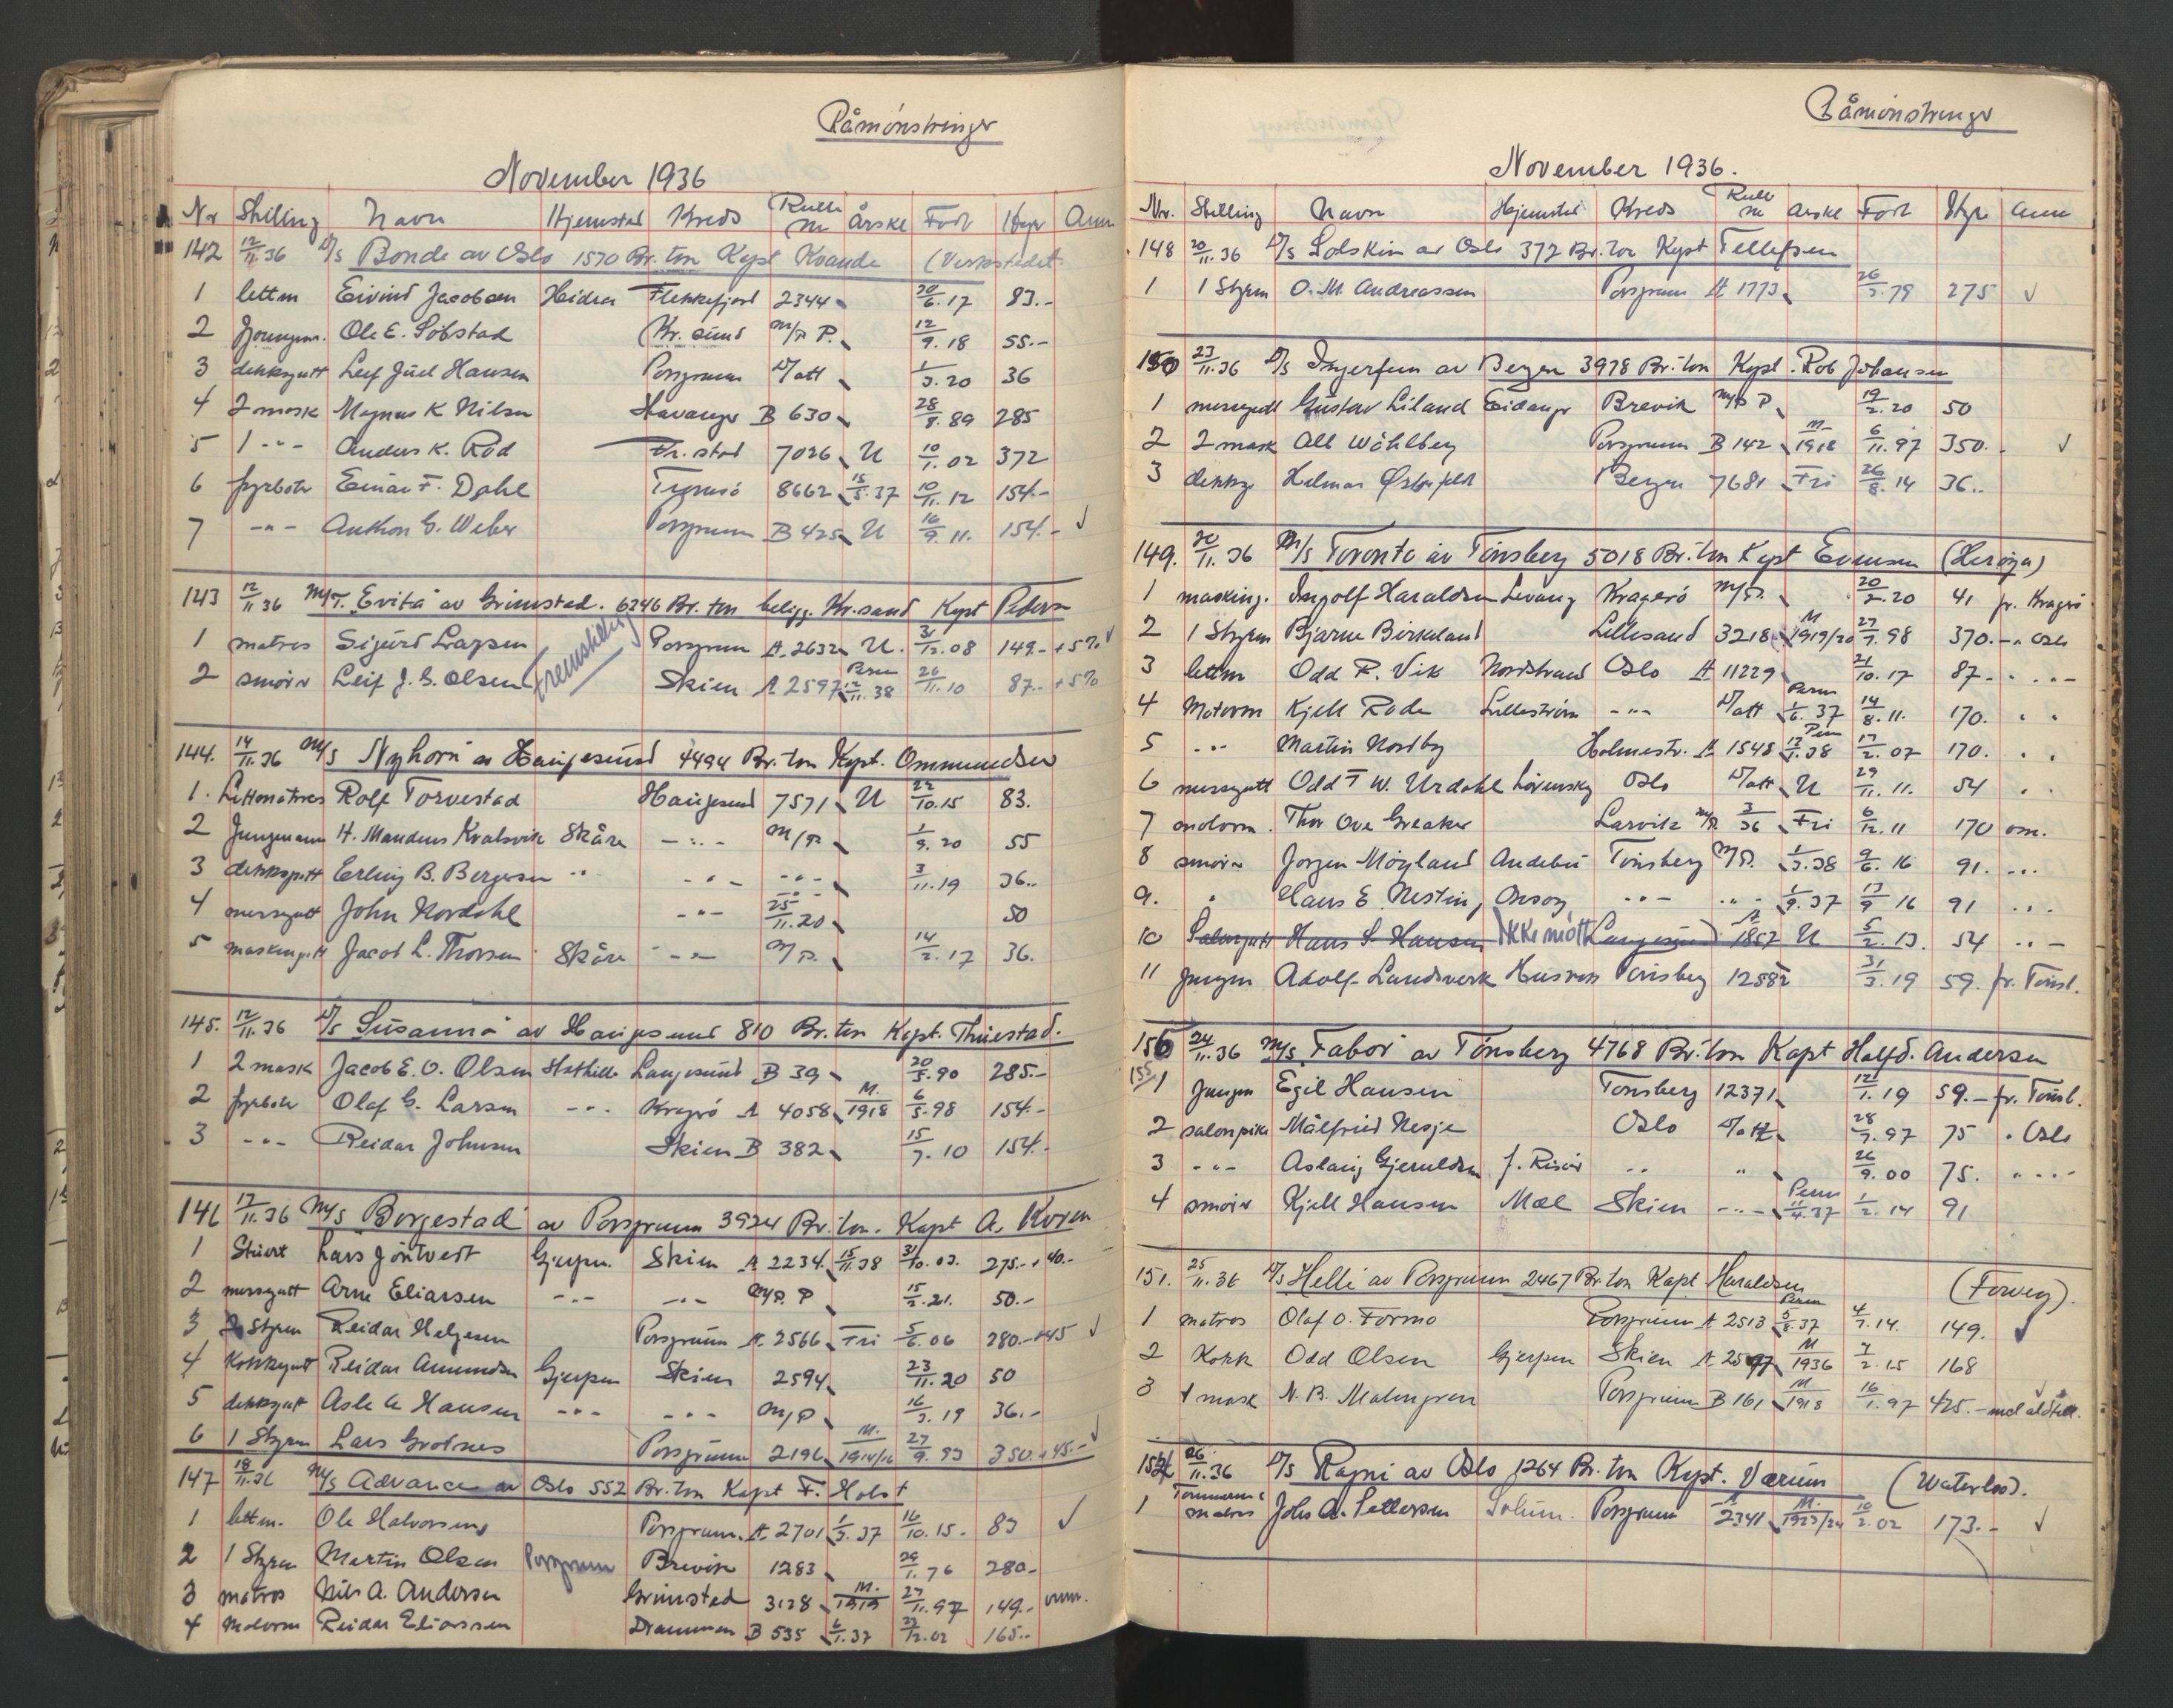 Påmönstringer
November 1936
Nr Stilling Navn Hjemsted Kreds Rulle Nr Årskl Född Hyre Anm
142 12/11.36 D/s Bonde av Oslo 1570 Br.ton Kapt Kvande (Verkstedet
1 lettm Eivind Jacobsen Hidra Flekkefjord 2344 20/6.17 83.-
2 Jungm. Ole E. Sobstad Kr.sund M/P P. 12/9.18 55.-
3 dekksgutt Leif Juel Hansen Porsgrunn D/att 1/3.20 36
4 2 mask Magnus K Nilsen Stavanger B 630 28/8.89 285
5 1 -"- Anders K. Röd Fr.stad 7026 U 10/1.02 372
6 fyrbötr Einar F. Dahl Tromsö 8662 15/5.37 10/11.12 154.-
7 -"- Anthon G. Weber Porsgrunn B 425 U 16/9.11. 154.-
143 12/11 36 M/T. "Evita" av Grimstad. 6246 Br. ton beligg. Kr.sand Kapt Peders
1 matros Sigurd Larsen Porsgrun A. 2632 U. 31/12.08 149.- +5%
2 smörer Leif J. G. Olsen Fremstilling Skien A 2597 Perm 12/11.38 26/11.10 87.- +5%
144. 14/11.36 M/s Nyhorn av Haugesund 4494 Br. ton Kapt. Ommundsen
1. Lettmatros Rolf Torvestad Haugesund 7571 U 22/10.15 83.
2 Jungmann H. Mandius Kvalsvik Skåre -"- M/P 1/9.20 55
3 dekksgutt Erling B. Bergesen -"- -"- -"- 3/11.19 36..
4 messegutt John Nordahl -"- 25/11.20 50
5 maskingutt Jacob L. Thorsen Skåre -"- M/P. 14/2.17 36.
145. 12/11.36 D/s "Susanna" av Haugesund 810 Br.ton Kapt. Thuestad.
1 2 mask Jacob E. O. Olsen Stathelle Langesund B 39 20/5.90 285.-
2 fyrbötr Olaf G. Larsen -"- Kragerö A 4058 M. 1918 6/5.98 154.-
3 -"- Reidar Johnsen Skien B 382 15/7.10 154.-
146 17/11.36 M/s "Borgestad" av Porsgrunn 3924 Br.ton. Kapt A. Koren
1 Stuert Lars Jöntvedt Gjerpen Skien A 2234. 15/11.38 31/10.03. 275.- +40.-
2 messegutt Arne Eliassen -"- -"- M/P. P 15/2.21. 50.-
3 2 Styrm Reidar Helgesen Porsgrunn A. 2566 Fri 5/6.06 280.-+45
4 Kokkegutt Reidar Amundsen Gjerpen Skien 2594 23/11.20 50
5 dekksgutt Asle A Hansen -"- -"- M/P 16/3.19 36.-
6 1 Styrm Lars Grotnes Porsgrunn 2196 M. 1914/16 27/9.93 350.+45.-
147 18/11.36 M/s Advance av Oslo 552 Br.ton Kapt F. Holst
1 lettm. Ole Halvorsen Porsgrunn. A. 2701 1/3.37 16/10.15. 83
2 1 Styrm Martin Olsen Porsgrunn Brevik 1283 29/1.76 280.-
3 matros Nils A. Andersen Grimstad 3128 M. 1919 27/11.97 149.-
4 Motorm Reidar Eliassen Drammen B 535 6/1.37 23/12.02 165..
Påmönstringer
November 1936.
Nr. Stilling Navn Hjemsted Kreds Rulle nr Årskl Född Hyre Anm
148 20/11.36 D/s Solskin av Oslo 372 Br.ton Kapt Tellefsen
1 1 Styrm O. M. Andreassen Porsgrunn A 1773 26/3.79 275
150 23/11.36 D/s Ingerfem av Bergen 3978 Br.ton Kapt. Rob Johansen
1 messegutt Gustav Liland Eidanger Brevik M/P P 19/2.20 50
2 2 mask Alb Wöhlberg Porsgrunn B 142 M- 1918 6/11.97 350.-
3 dekksg Helmar Østerfeldt Bergen 7681 Fri 26/8.14 36..
149. 20/11.36 M/s Toronto av Tönsberg 5018 Br.ton Kapt Evensen (Heröya)
1 masking. Ingolf Haraldsen Levang Kragerö M/P. 20/2.20 41 fr. Kragerö
2 1 Styrm Bjarne Birkeland Lillesand 3218 M 1919/20 27/7.98 370.- " Oslo
3 lettm Odd P. Vik Nordstrand Oslo A 11229 21/10.17 87.- " " -
4 Motorm Kjell Rode Lilleström -"- D/att Perm 1/6.37 14/8.11. 170. " "
5 -"- Martin Nordby Holmestr. A 1548 Perm 12/1.38 17/2.07 170. " "
6 messegutt Odd T W. Urdahl Oslo D/att U 29/11.11. 54 " "
7 motorm. Thor Ove Greaker Larvik M/P. 3/36 Fri 6/12.11 170 om.
8 smörer Jörgen Möyland Andebu Tönsberg M/P. 1/3.38 9/6.16 91. "
9. " Hans E. Nestin, Onsöy -"- " " - 1/9.37 13/9 16 91 " "
10 Salongutt Hans S. Hansen Ikke mött Langesund A 1857 U 5/2.13. 54 " -
11 jungm Adolf Landsverk Husvik Tönsberg 12582 31/3.19 59. fr. Tönsb.
150 24/11.36 M/s "Tabor" av Tönsberg 4768 Br.ton Kapt Halfd. Andersen
155 1 Jungm Egil Hansen Tönsberg 12371 12/1.19 59.- fr. Tönsb.
2 salonpike Målfrid Nesje Oslo D/att 28/7.97 75 " Oslo
3 -"- Aslaug Gjeruldsen f. Risör " " 26/9.00 75. " " "
4 smörer Kjell Hansen Mæl Skien -"- Perm 11/4.37 1/2.14 91
151. 25/11.36 D/s "Helle" av Porsgrunn 2467 Br.ton Kapt Haraldsen (Torvey).
1 matros Olaf O. Formo Porsgrunn A 2513 Perm 5/8.37 4/7.14. 149.
2 Kokk Odd Olsen Gjerpen Skien A 2597 M 1936 7/2.15 168
3 1 mask N. B. Malmgren Porsgrunn B 161 M 1918 16/1.97 425.- med aldtill.
152 26/11.36 D/s Ragni av Oslo 1264 Br.ton Kapt. Værum (Waterloo).
1 Tömmerm & matros Johs A. Pettersen Solum. Porsgrunn A 2341 M. 1923/24 10/2.02 173.-